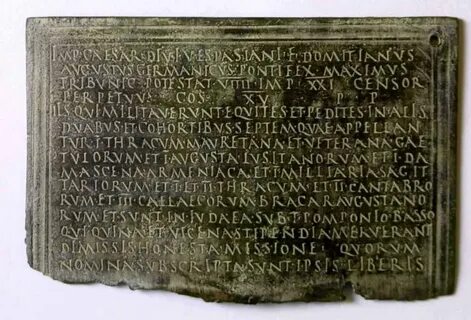 IMP CAESAR DIVI VESPASIANI F DOMITIANVS
AVGVSTVS GERMANICVS PONTIFEX MAXIMVS
TRIBVNIC POTESTAT VIIII IMP XXI CENSOR
PERPETVVS COS XV P P
IIS QVI MILITAVERVNT EQVITES ET PEDITES IN ALIS
DVABVS ET COHORTIBVS SEPTEM QVAE APPELLAN
TVR I THRACVM MAVRETANA ET VETERANA GAE
TVLORVM ET I AVGVSTA LVSITANORVM ET I DA
MASCENA ARMENIACA ET I MILLIARIA SAGIT
TARIORVM ET I ET II THRACVM ET II CANTABRO
RVM ET III CALLAECORVM BRACARAVGVSTANO
RVM ET SVNT IN IVDAEA SVB T POMPONIO BASSO
QVI QVINA ET VICENA STIPENDIA MERVERANT
DIMISSIS HONESTA MISSIONE QVORVM
NOMINA SVBSCRIPTA SVNT IPSIS LIBERIS